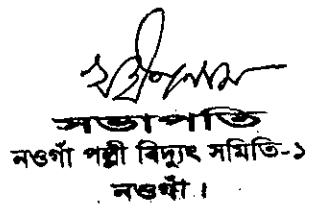 সভাপতি
নওগাঁ পল্লী বিদ্যুৎ সমিতি-১
নওগাঁ।